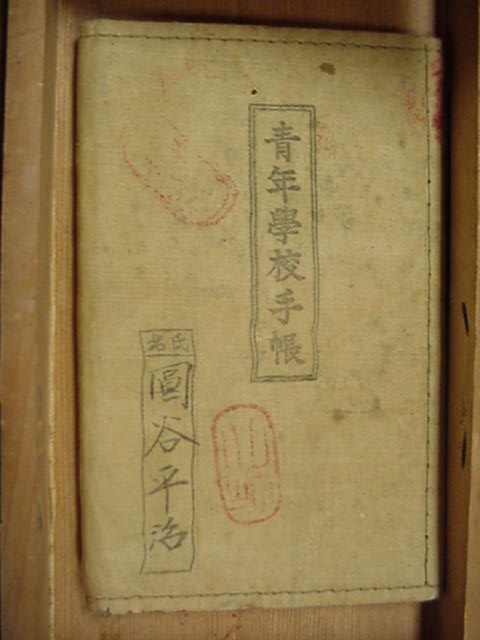 青年學校手帳
氏名
圓谷平治